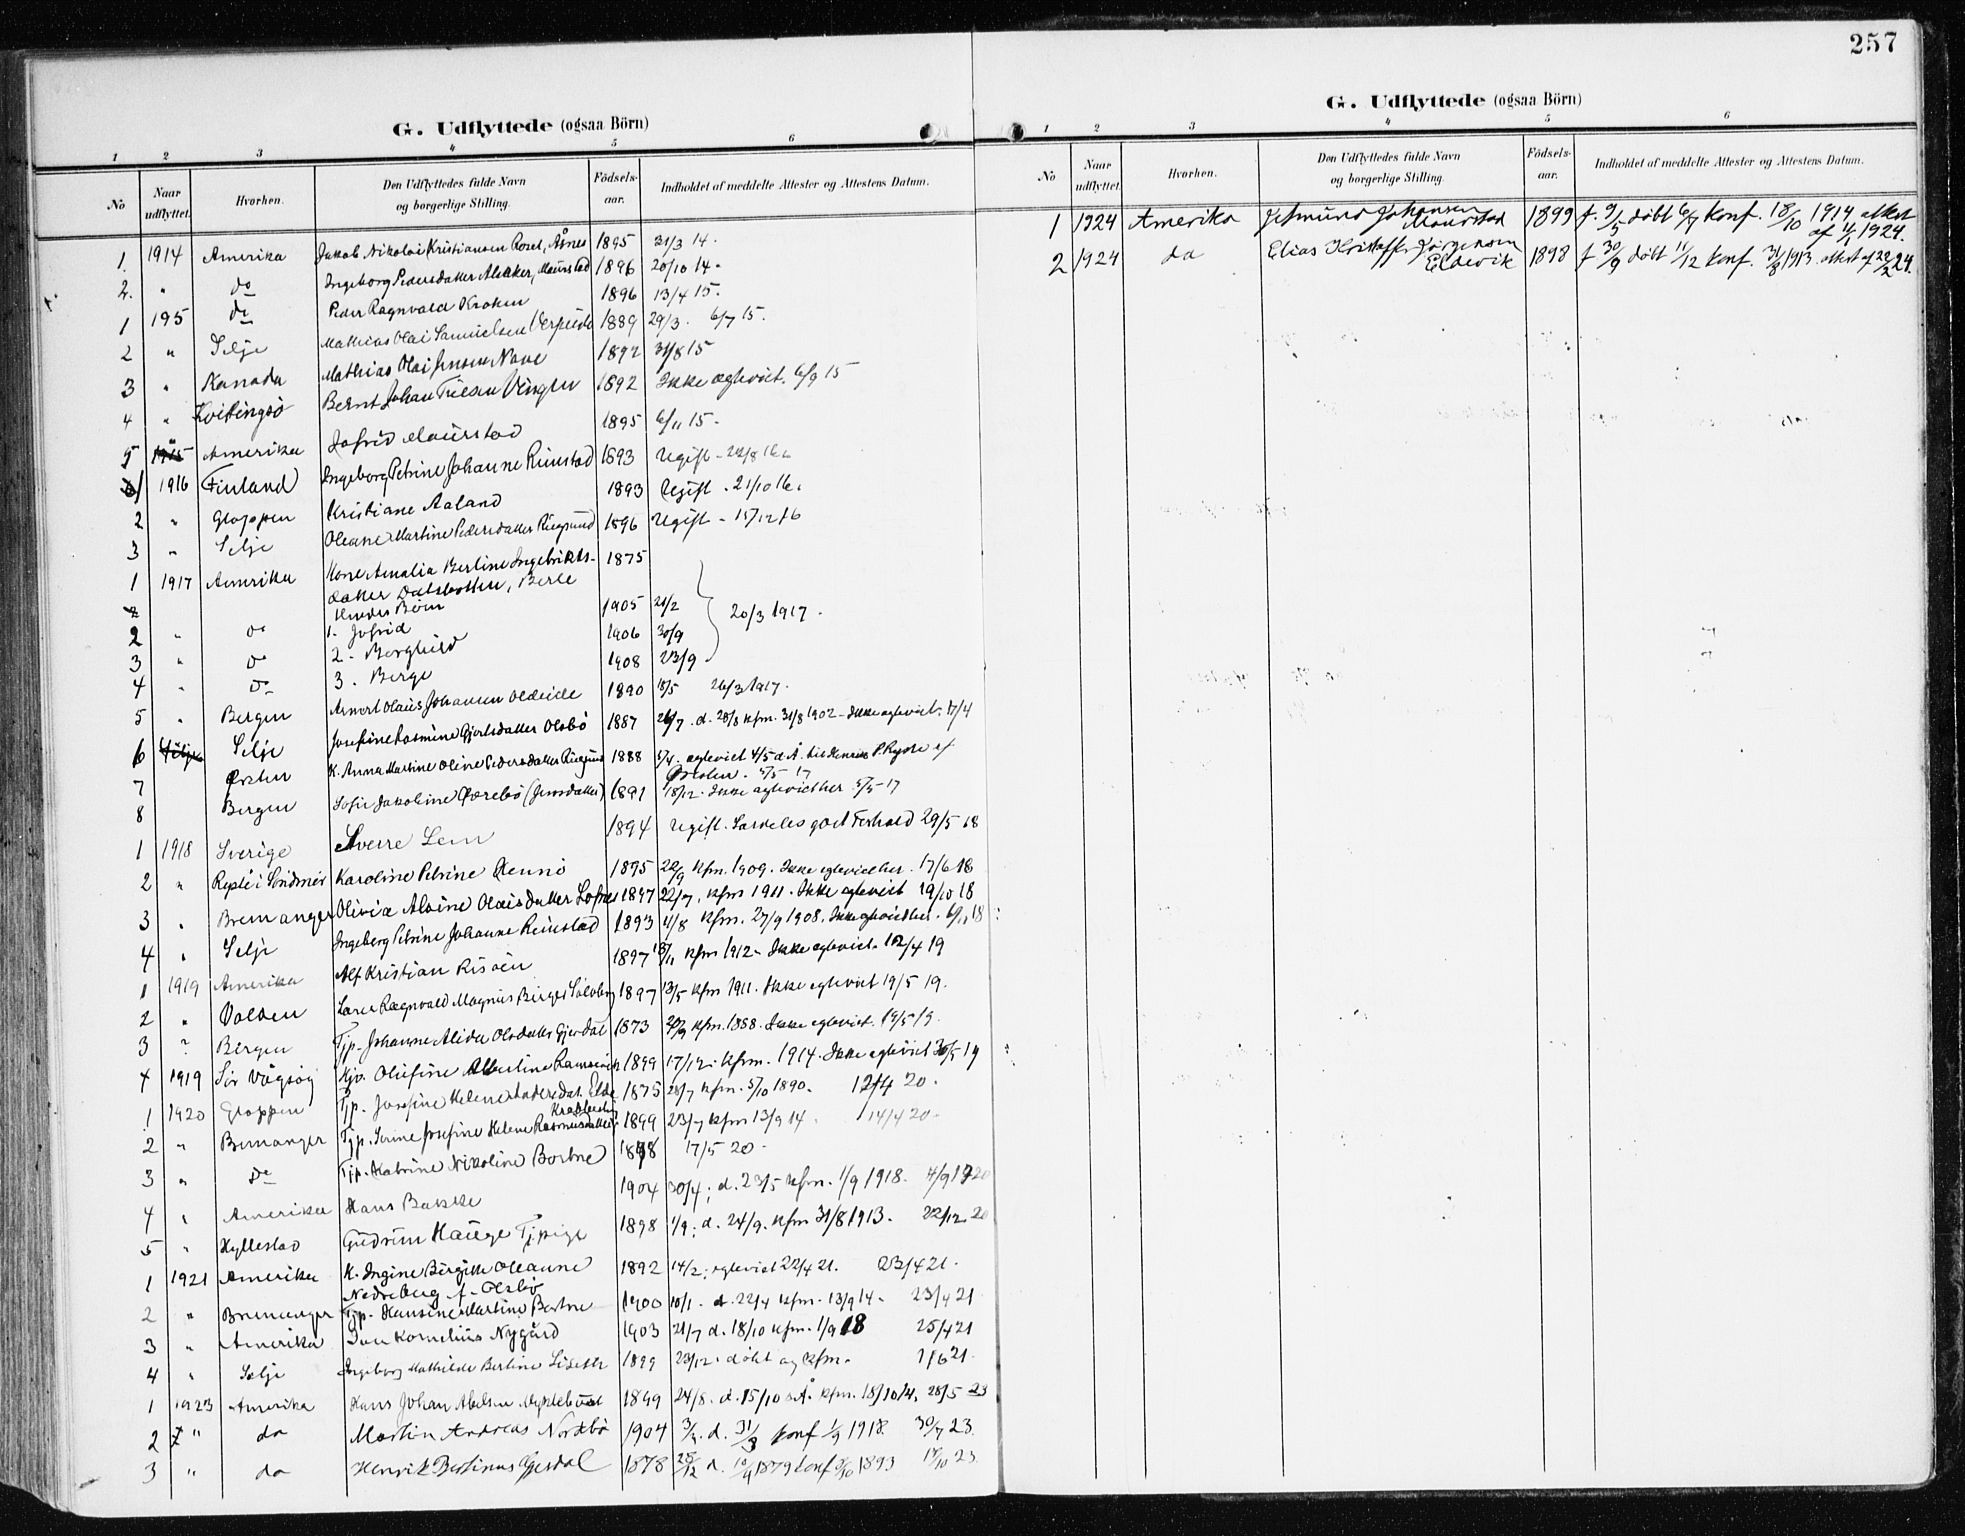 257
G. Udflyttede (ogsaa Börn)
1 2 3 4 5 6
No Naar udflyttet. Hvorhen. Den Udflyttedes fulde Navn og borgerlige Stilling. Födsels-aar. Indholdet af meddelte Attester og Attestens Datum.
1. 1914 Amerika Jakob Nikolai Kristiansen Åsnes 1895 31/3 14.
2. " do Ingeborg Pedersdatter Maurstad 1896 20/10 14.
1 195 do Peder Ragnvald Kroken 1896 13/4 15.
2 " Selje Mathias Olai Samuelsen 1889 29/3. 6/7 15.
3 " Kanada Mathias Olai Jensen Nave 1892 31/8 15
4 " Kvitingsö Bernt Johan 1892 Ikke ægteviet. 6/9 15
5 1915 Amerika Jofrid Maurstad 1895 6/11 15.
1 1916 Finland Ingeborg Petrine Johanne Rimstad 1893 Ugift - 24/8 16.
2 " Gloppen Kristiane Aaland 1893 Ugift . 21/10 16.
3 " Selje Oleane Martine Pedersdatter Rugsund 1896 Ugift - 15/12 16
1 1917 Amerika Kone Amalia Berline Ingebrikts- 1875
datter Dalsbotten, Berle
2 Hendes Börn
2 " do 1. Jofrid 1905 21/2
3 " do 2. Berghild 1906 30/9 } 20/3 1917.
4 " do 3. Berge 1908 23/9
5 " Bergen Olaus Johansen Oldeide 1890 18/5 26/3 1917.
6 Selje Josefine Rasmine Gjertsdatter Olsbö 1887 26/7. d. 28/8 kfm. 31/8 1902 - Ikke ægteviet. 17/4
7 Örsten K. Anna Martine Oline Pedersdatter Rugsund 1888 5/4. ægteviet 4/5 d.Å. til P. Ryste af
Örsten. 5/5 17
8 Bergen Sofie Jakobine Övrebö (Jensdatter) 1891 18/12. Ikke ægteviet her. 5/5-17
1 1918 Sverige Sverre Lem 1894 Ugift. Særdeles godt Forhold 29/5 18
2 " Karoline Petrine Hennö 1895 20/9 kfm. 1909. Ikke egteviet her. 17/6 18
3 " Bremanger Olivia Alvine Olaisdatter 1897 22/7. kfm 1911. Ikke egteviet 19/10 18
4 " Selje Ingeborg Petrine Johanne Rimstad 1893 4/8 kfm. 27/9 1908. Ikke egteviet her. 6/11 18
1 1919 Amerika Alf Kristian Risöen 1897 18/11 kfm 1912 - Ikke egteviet. 12/4 19
2 " Volden Lars Ragnvald Magnus Birger 1897 13/5 kfm 1911. Ikke egteviet 19/5 19.
3 " Bergen Tjp. Johanne Alida Olsdatter Gjerdal 1873 kfm. 1888. Ikke egteviet. 19/5 19.
4 1919 Sör Vågsöy Olufine Albertine 1899 17/12. kfm. 1914. Ikke egteviet 30/5 19
1 1920 Gloppen Tjp. Josefine Helene 1875 28/7 kfm. 5/10 1890. 12/4 20.
2 " Bremanger Tjp. Serine Josefine Helene Rasmusdatter 1899 23/7 kfm 13/9 14. 14/4 20.
3 " do Tjp. Katrine Nikoline Bortne 1898 17/5 20.
4 " Amerika Hans Bakke 1904 30/4; d. 23/5 kfm. 1/9 1918. 4/9 1920
5 " Hyllestad Gudrun Hauge Tjpige 1898 1/9; d. 24/9. kfm 31/8 1913. 22/12 20
1 1921 Amerika K. Ingine Birgitte Oleanne 1892 14/2; egteviet 22/4 21. 23/4 21.
Nedreberg f. Olsbö
2 " Bremanger Tjp. Hansine Martine Bortne 1900 10/1. d. 22/4 kfm. 13/9 14. 23/4 21
3 " Amerika Kornelius Nygård 1903 21/7 d. 18/10 kfm. 1/9 18 25/4 21
4 " Selje Ingeborg Mathilde Berline Liseth 1899 23/12. döbt og kfm. 1/6 21.
1 1923 Amerika Hans Johan Abelsen Myklebust 1899 24/8. d. 15/10 s.Å. kfm. 18/10 14. 28/5 23
2 " do Martin Andreas Nordbö 1904 3/2. d. 31/3 konf 1/9 1918. 30/7 23.
3 " do Henrik Bertinus Gjerdal 1878 28/12 d. 1879 konf 1893 17/10 23.
G. Udflyttede (ogsaa Börn)
1 2 3 4 5 6
No Naar udflyttet. Hvorhen. Den Udflyttedes fulde Navn og borgerlige Stilling. Födsels-aar. Indholdet af meddelte Attester og Attestens Datum.
1 1924 Amerika Johansen Maurstad 1899 f. 9/5 döbt 6/7 konf. 18/10 1914 attest af 4/1 1924.
2 1924 do Elias Kristoffer Jörgensen Eldevik 1898 f 30/9 döbt 11/12 konf. 31/8 1913. attest af 22/2 24.